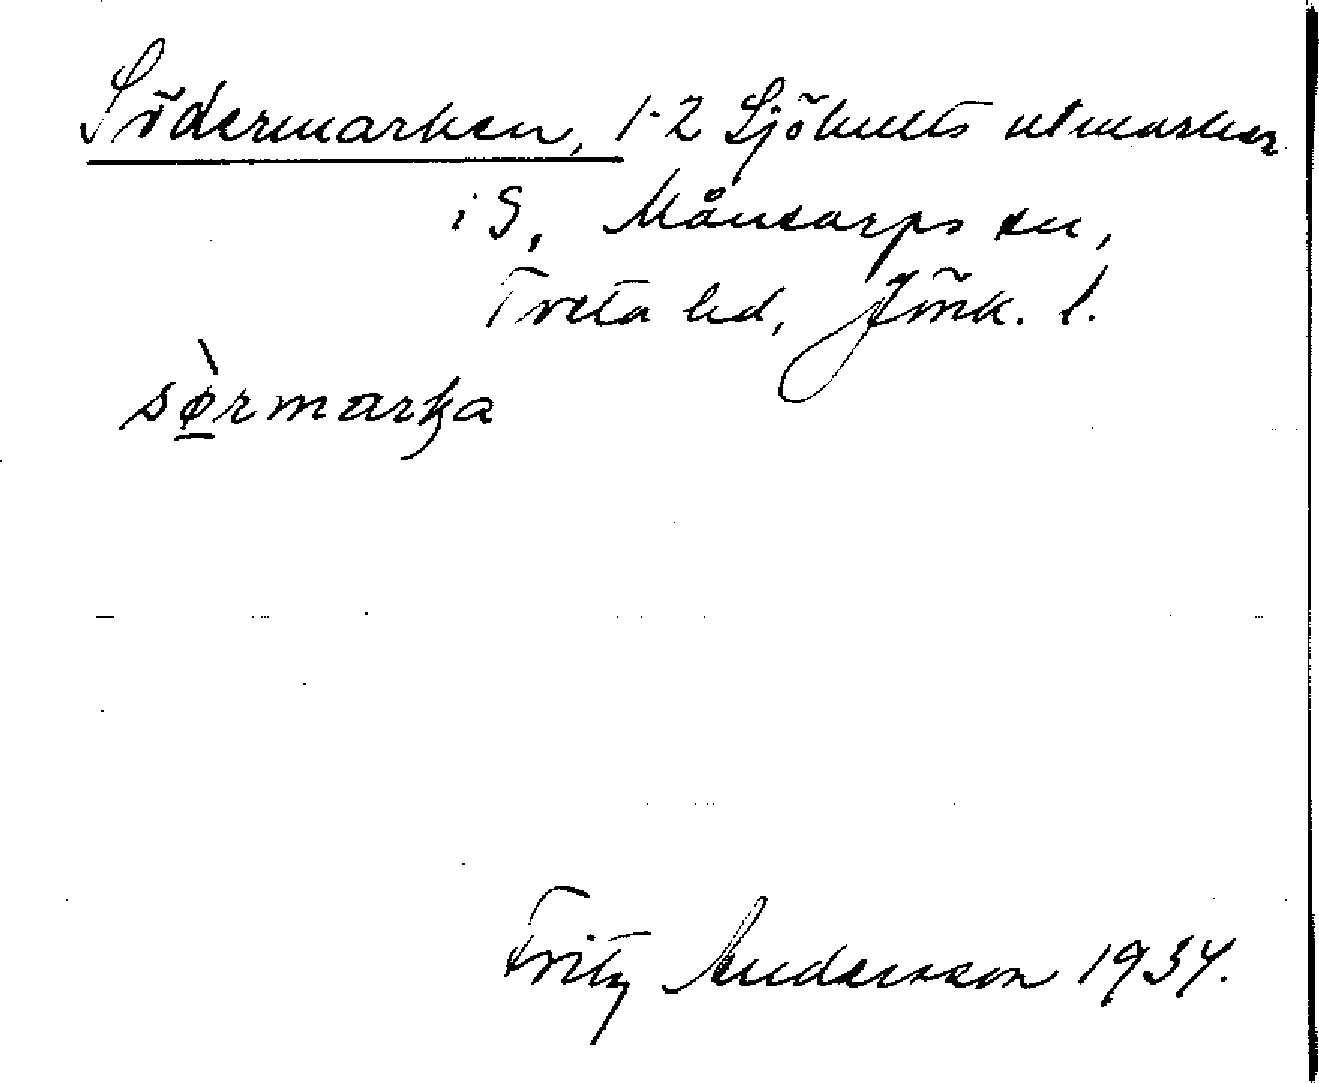 Södermarken, 1-2 Sjöhults utmarker
i S, Månsarps sn,
Tveta hd, Jönk. l.
sø̀rmarka
Fritz Andersson 1934.